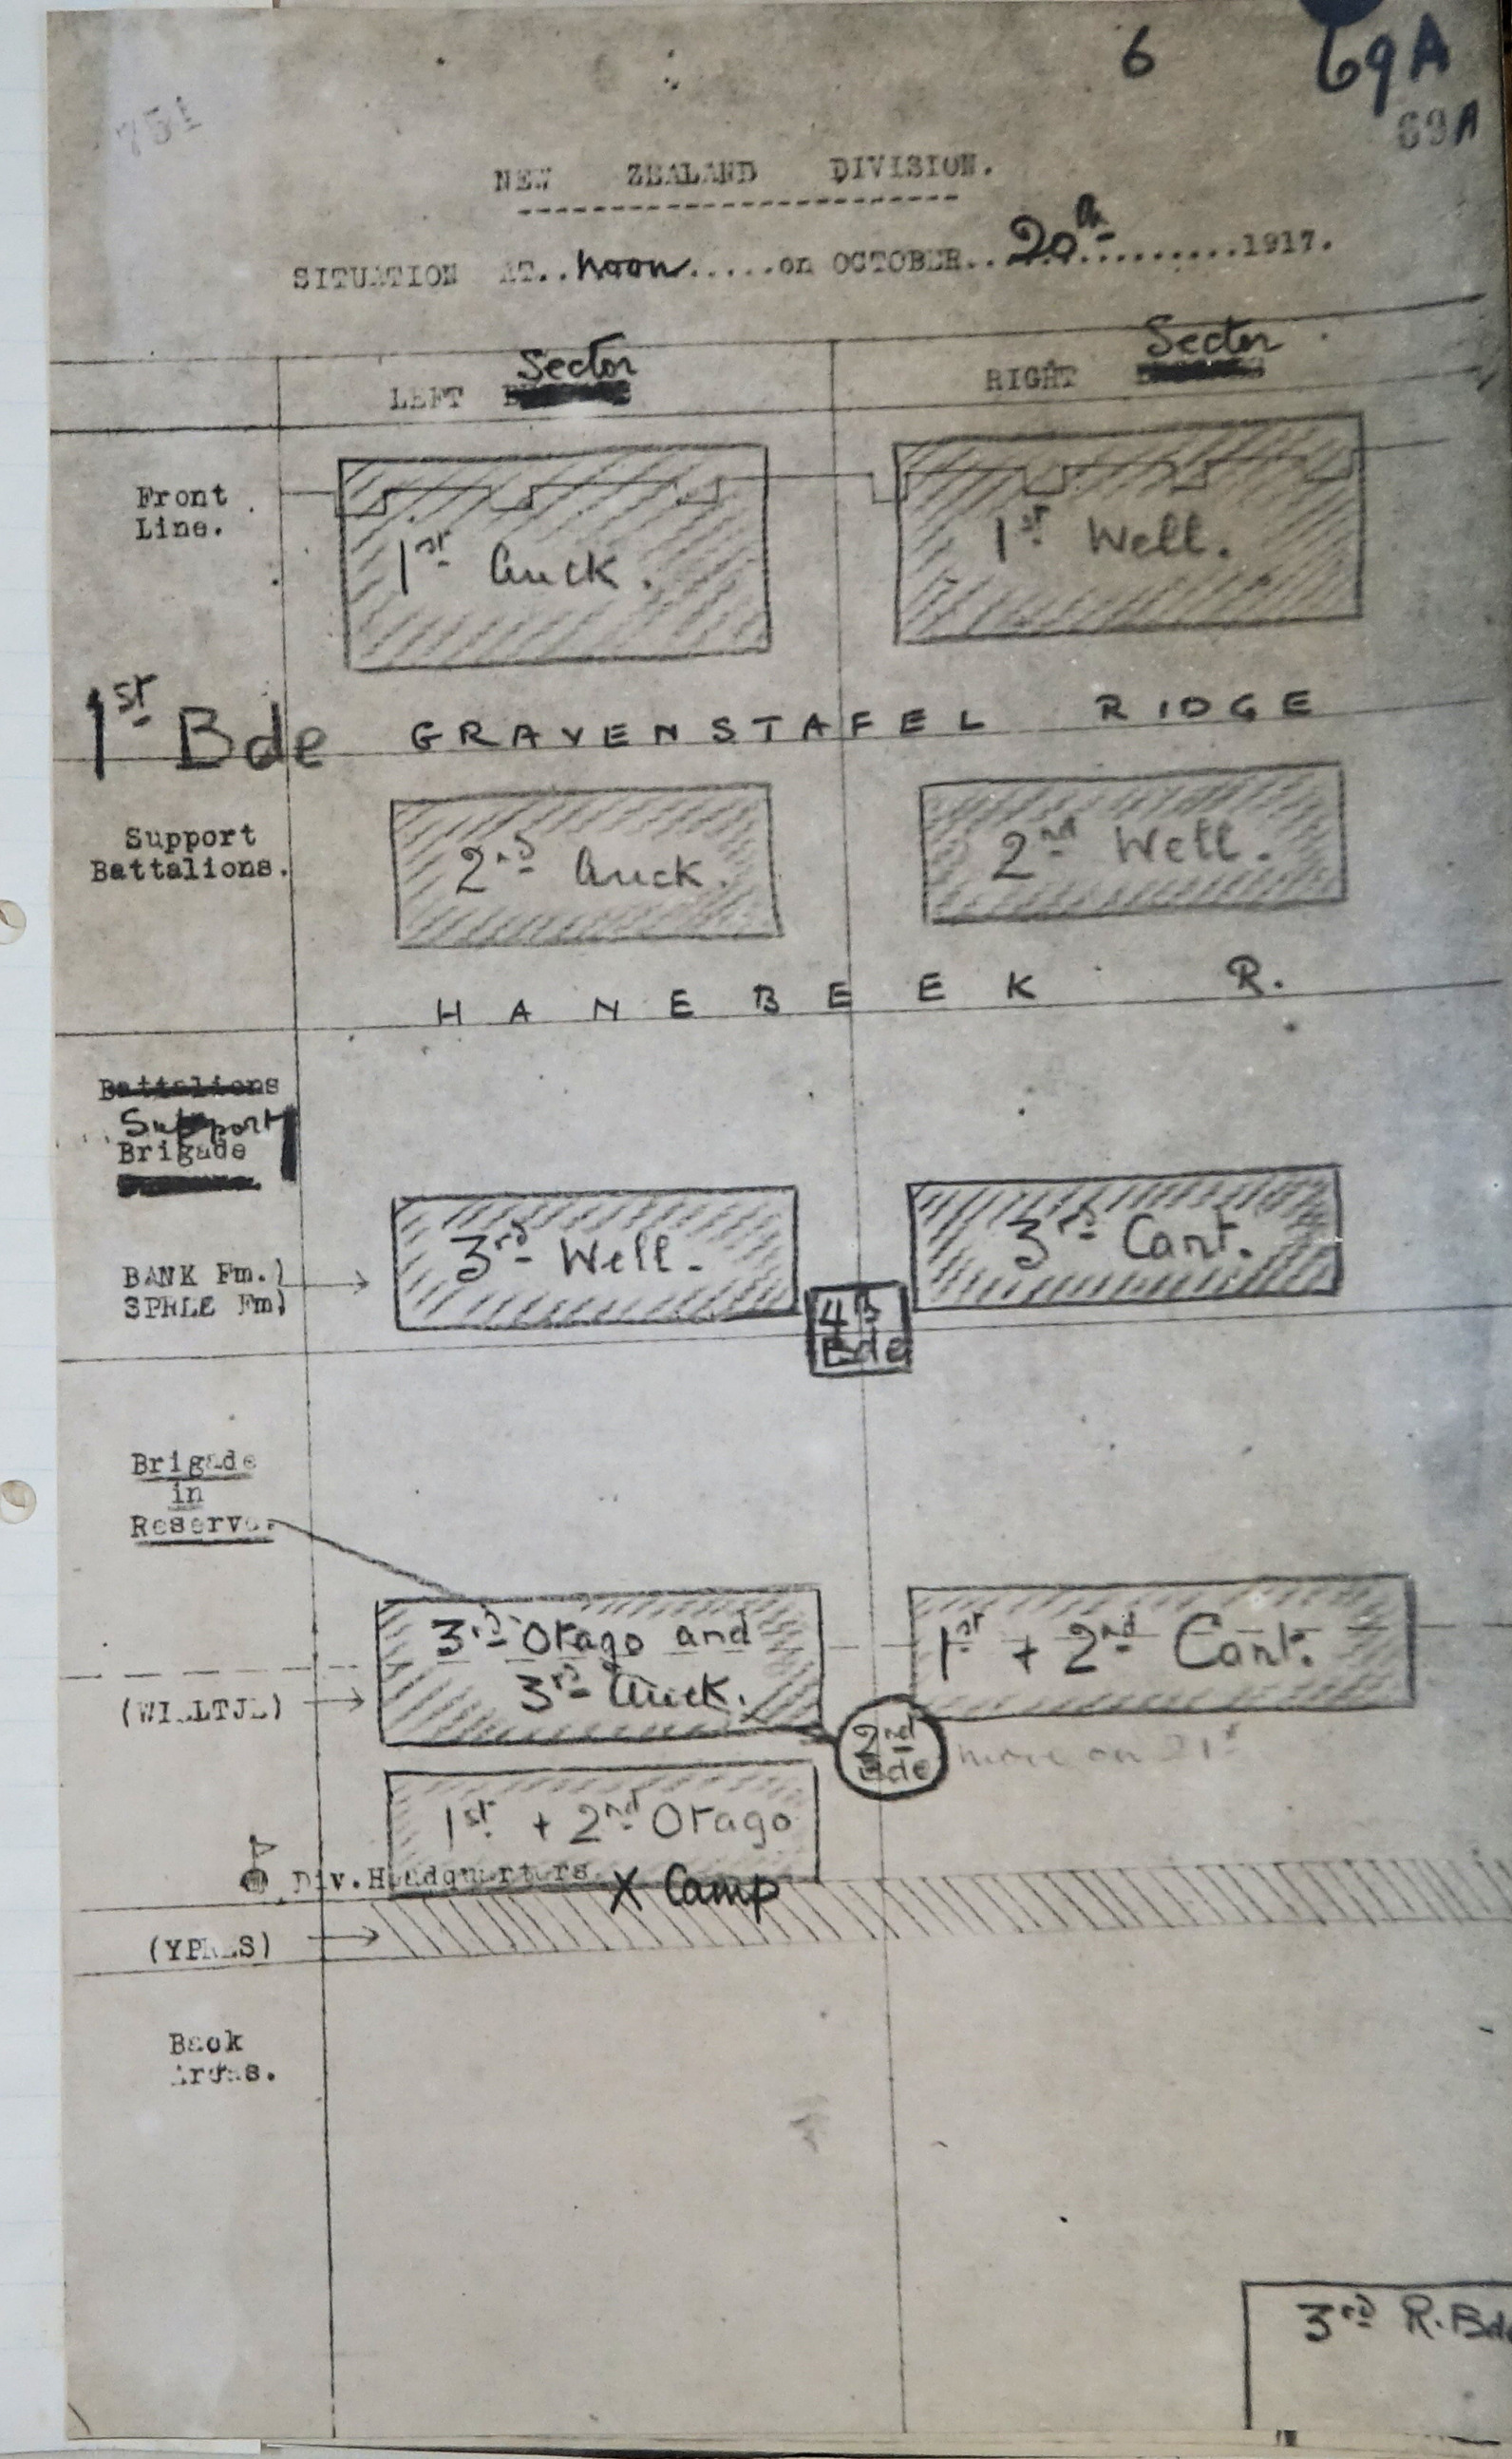 6
69A
69A
751
NEW ZEALAND DIVISION.
SITUATION AT..noon.....on OCTOBER..20th..........1917.
LEFT Sector
RIGHT Sector
Front
Line.
1st Auck.
1st Well.
1st Bde
GRAVENSTAFEL RIDGE
Support
Battalions.
2nd Auck.
2nd Well.
HANEBEEK R.
Battalions
Support
Brigade
BANK Fm.)
SPREE Fm)
3rd Well.
3rd Cant.
4th
Bde
Brigade
in
Reserve.
3rd Otago and
3rd Auck.
1st + 2nd Cant.
(WIELTJE)
2nd
Bde
move on 21st
1st + 2nd Otago
Div. Headquarters.
X Camp
(YPRES)
Back
Areas.
3rd R. Bde